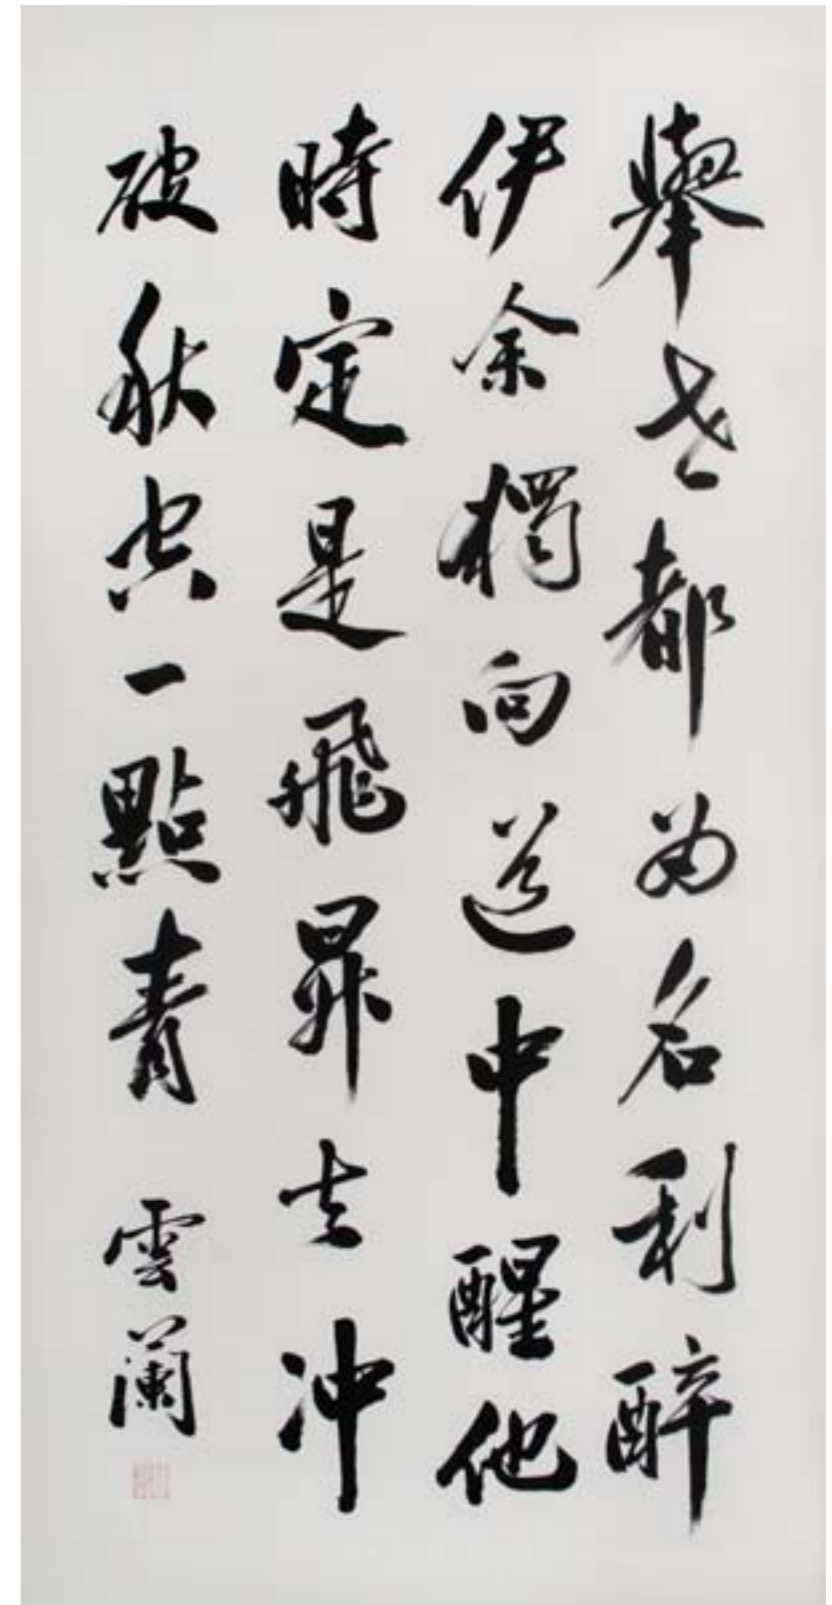 舉世都為名利醉
伊余獨向道中醒他
時定是飛昇去冲
破秋空一點青 雲蘭